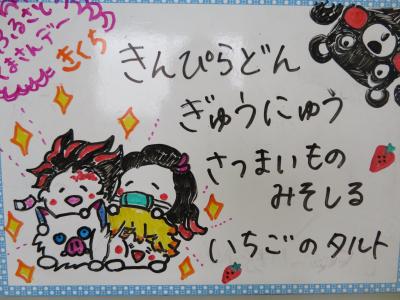 ふるさと
くまさんデー
きくち
きんぴらどん
ぎゅうにゅう
さつまいもの
みそしる
いちごのタルト